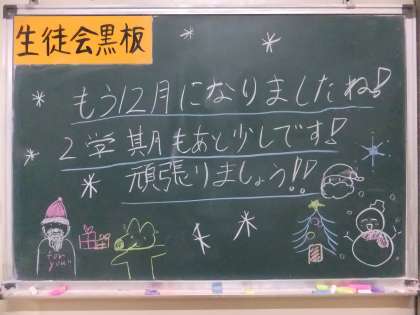 生徒会黒板
もう12月になりましたね!
2学期もあと少しです!
頑張りましょう!!
for
you!!